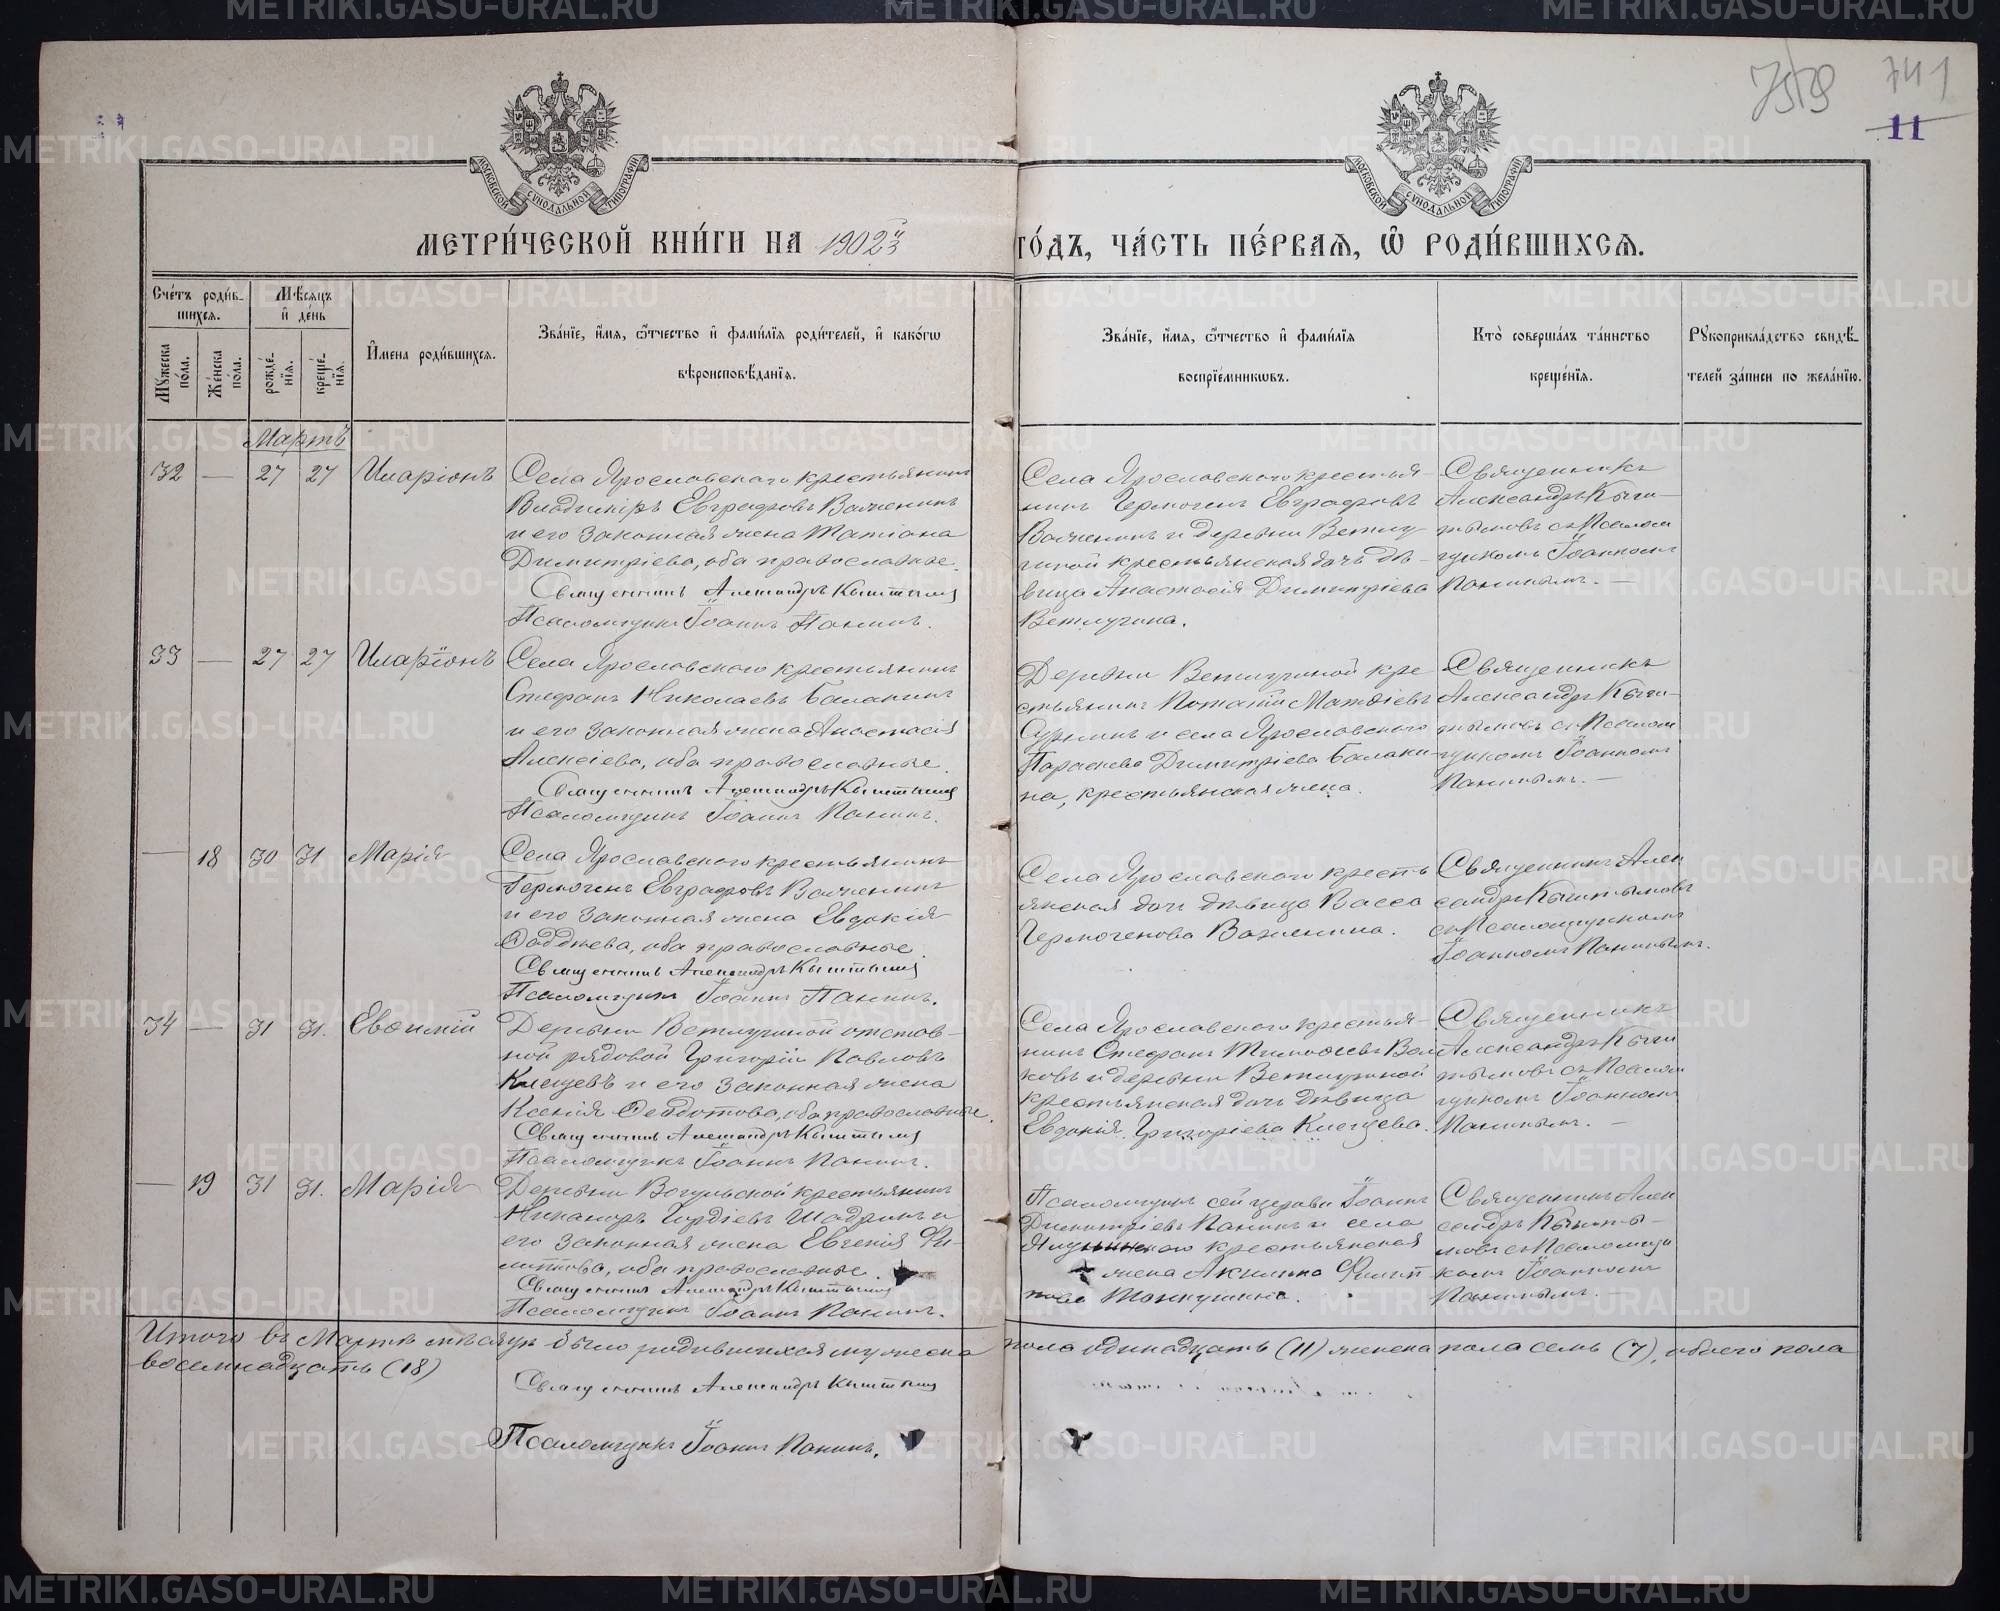 7519
741
11
МОСКОВСКОЙ СѴНОДАЛЬНОЙ ТИПОГРАФІИ
МОСКОВСКОЙ СѴНОДАЛЬНОЙ ТИПОГРАФІИ
МЕТРИ́ЧЕСКОЙ КНИ́ГИ НА 1902й
ГО́ДЪ, ЧА́СТЬ ПЕ́РВАЯ, Ѡ РОДИ́ВШИХСЯ.
Сче́тъ роди́в-
шихся.
Мѣ́сяцъ
и де́нь
Му́жеска по́ла.
Же́нска по́ла.
рожде́-
нїя.
креще́-
нїя.
И҆мена роди́вшихся.
Зва́нїе, и҆́мя, ѻ҆́тчество и҆ фами́лїя роди́телей, и҆ како́гѡ
вѣроисповѣ́данїя.
Зва́нїе, и҆́мя, ѻ҆́тчество и҆ фами́лїя
воспрїе́мникѡвъ.
Кто̀ соверша́лъ та́инство
креще́нїя.
Рꙋкоприкла́дство свидѣ́-
телей за́писи по жела́нїю.
Мартъ
32 — 27 27 Иларіонъ
Села Ярославскаго крестьянинъ
Владиміръ Евграфовъ Важенинъ
и его законная жена Татіана
Димитріева, оба православные.
Священникъ Александръ Кыштымовъ
Псаломщикъ Іоаннъ Панинъ.
Села Ярославскаго крестья-
нинъ Гермогенъ Евграфовъ
Важенинъ и деревни Ветлу-
гиной крестьянская дочь дѣ-
вица Анастасія Димитріева
Ветлугина.
Священникъ
Александръ Кыш-
тымовъ съ Псалом
щикомъ Іоанномъ
Панинымъ. —
33 — 27 27 Иларіонъ
Села Ярославскаго крестьянинъ
Стефанъ Николаевъ Балакинъ
и его законная жена Анастасія
Алексіева, оба православные.
Священникъ Александръ Кыштымовъ
Псаломщикъ Іоаннъ Панинъ.
Деревни Ветлугиной кре-
стьянинъ Матѳіевъ
и села Ярославскаго
Параскева Димитріева Балаки-
на, крестьянская жена.
Священникъ
Александръ Кыш-
тымовъ съ Псалом
щикомъ Іоанномъ
Панинымъ. —
— 18 30 31 Марія
Села Ярославскаго крестьянинъ
Гермогенъ Евграфовъ Важенинъ
и его законная жена Евдокія
Ѳаддѣева, оба православные.
Священникъ Александръ Кыштымовъ
Псаломщикъ Іоаннъ Панинъ.
Села Ярославскаго кресть
янская дочь дѣвица Васса
Гермогенова Важенина.
Священникъ Алек
сандръ Кыштымовъ
съ Псаломщикомъ
Іоанномъ Панинымъ.
34 — 31 31. Евѳимій
Деревни Ветлугиной отстав-
ной рядовой Григорій Павловъ
Клещевъ и его законная жена
Ксенія Ѳеодотова, оба православные.
Священникъ Александръ Кыштымовъ
Псаломщикъ Іоаннъ Панинъ.
Села Ярославскаго крестья-
нинъ Стефанъ Тимоѳеевъ
ковъ и деревни Ветлугиной
крестьянская дочь дѣвица
Евдокія Григоріева Клещева.
Священникъ
Александръ Кыш
тымовъ съ Псалом
щикомъ Іоанномъ
Панинымъ. —
— 19 31 31. Марія
Деревни Вогульской крестьянинъ
Никаноръ Гордіевъ Шадринъ и
его законная жена Евгенія Фи-
липпова, оба православные.
Священникъ Александръ Кыштымовъ
Псаломщикъ Іоаннъ Панинъ.
Псаломщикъ сей церкви Іоаннъ
Димитріевъ Панинъ и села
крестьянская
жена Акилина Филип
пова
Священникъ Алек
сандръ Кышты-
мовъ съ Псаломщи
комъ Іоанномъ
Панинымъ. —
Итого въ Мартѣ мѣсяцѣ было родившихся мужеска пола одинадцать (11) женска пола семь (7), обоего пола
восемнадцать (18)
Священникъ Александръ Кыштымовъ
Псаломщикъ Іоаннъ Панинъ.
METRIKI.GASO-URAL.RU